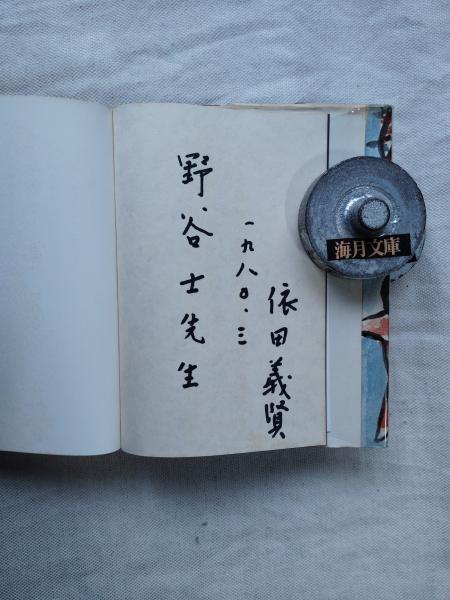 依田義賢
一九八〇.三
野谷士先生
海月文庫